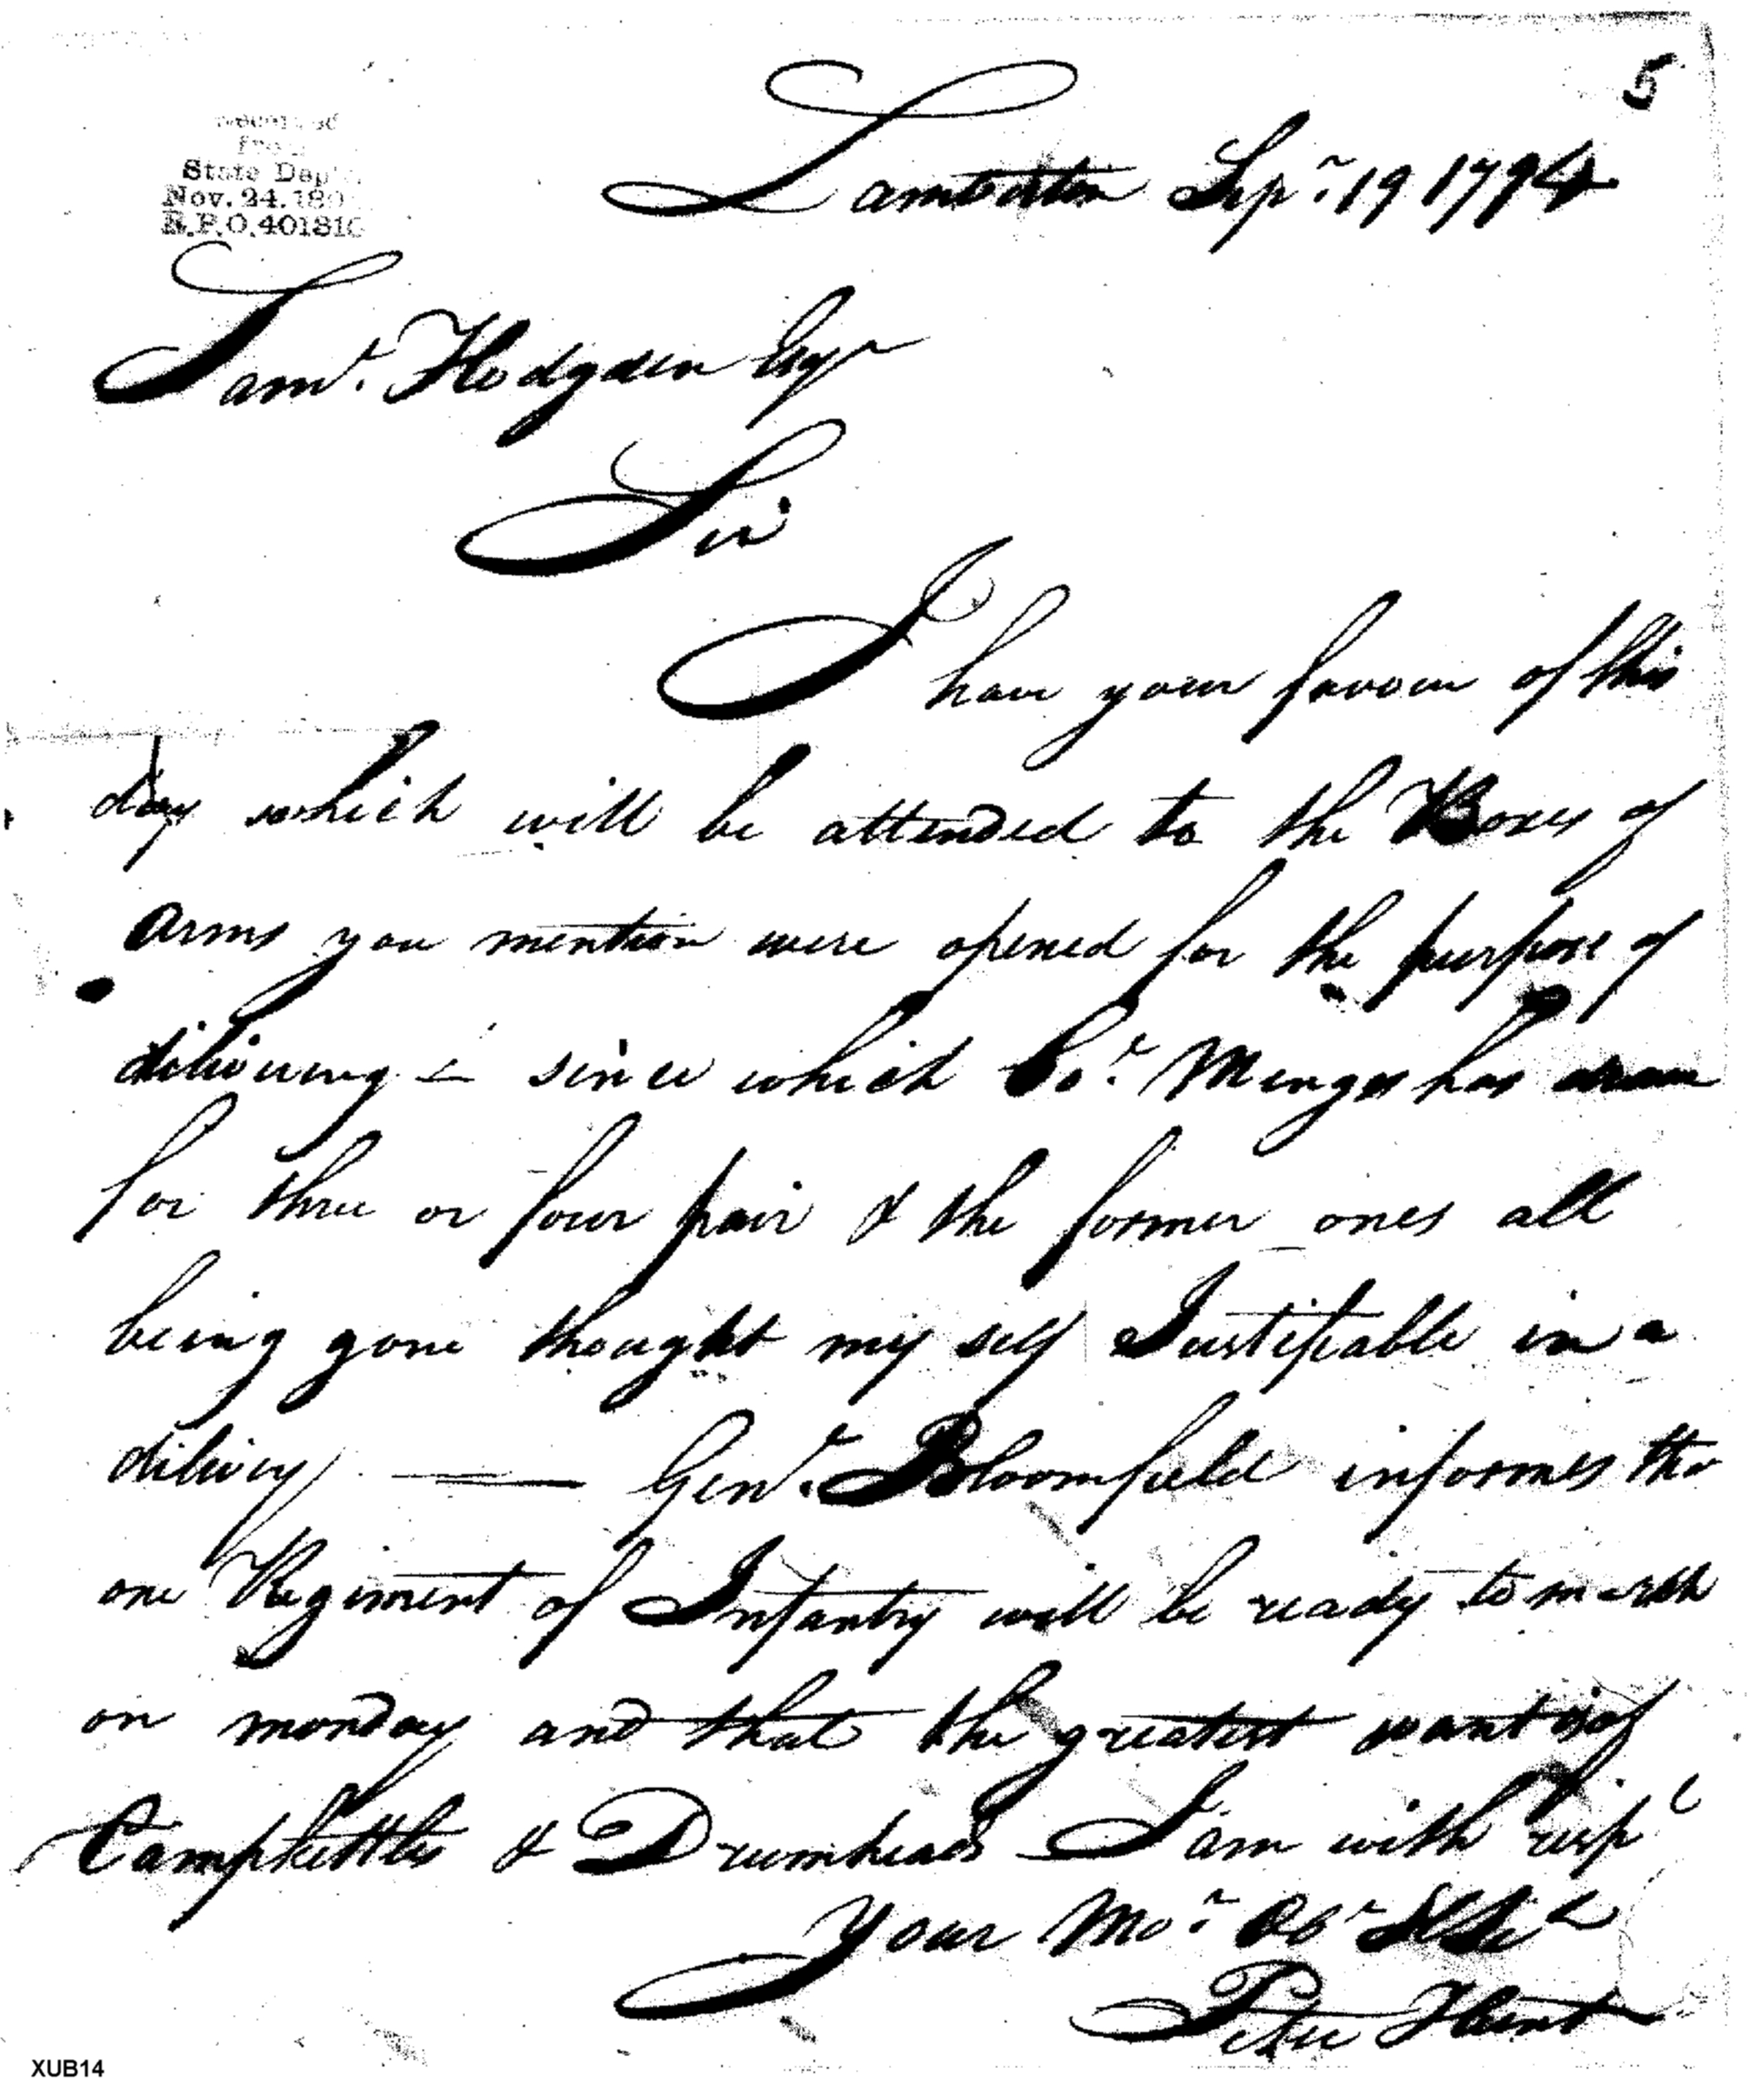 5
State Dep't.
Nov. 24. 180
R.P.O. 401810
Lamberton Sepr. 19 1794
Saml. Hodgden Esqr
Sir
I have your favour of this
day which will be attended to the Boxes of
Arms you mention were opened for the purpose of
delivering — since which Col. Menges has drawn
for three or four pair & the former ones all
being gone thought my self Justifiable in a
delivery — Genl. Bloomfield informes tha
one Regiment of Infantry will be ready to march
on monday and that the greatest want is of
Campkettles & Drumheads I am with resp
Your Mo. Ob
Peter Hunt
XUB14